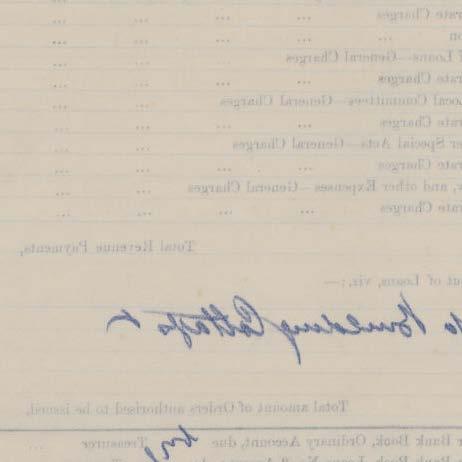 rate Charges ... ...
on ... ... ... ...
f Loans—General Charges ... ...
rate Charges ... ... ... ...
Local Committees—General Charges ... ...
rate Charges ... ... ... ...
er Special Acts—General Charges ... ...
rate Charges ... ... ... ...
s, and other Expenses—General Charges ... ...
rate Charges ... ... ... ...
Total Revenue Payments,
out of Loans, viz.:—
Building Cottages
Total amount of Orders authorised to be issued,
er Bank Book, Ordinary Account, due by Treasurer ...